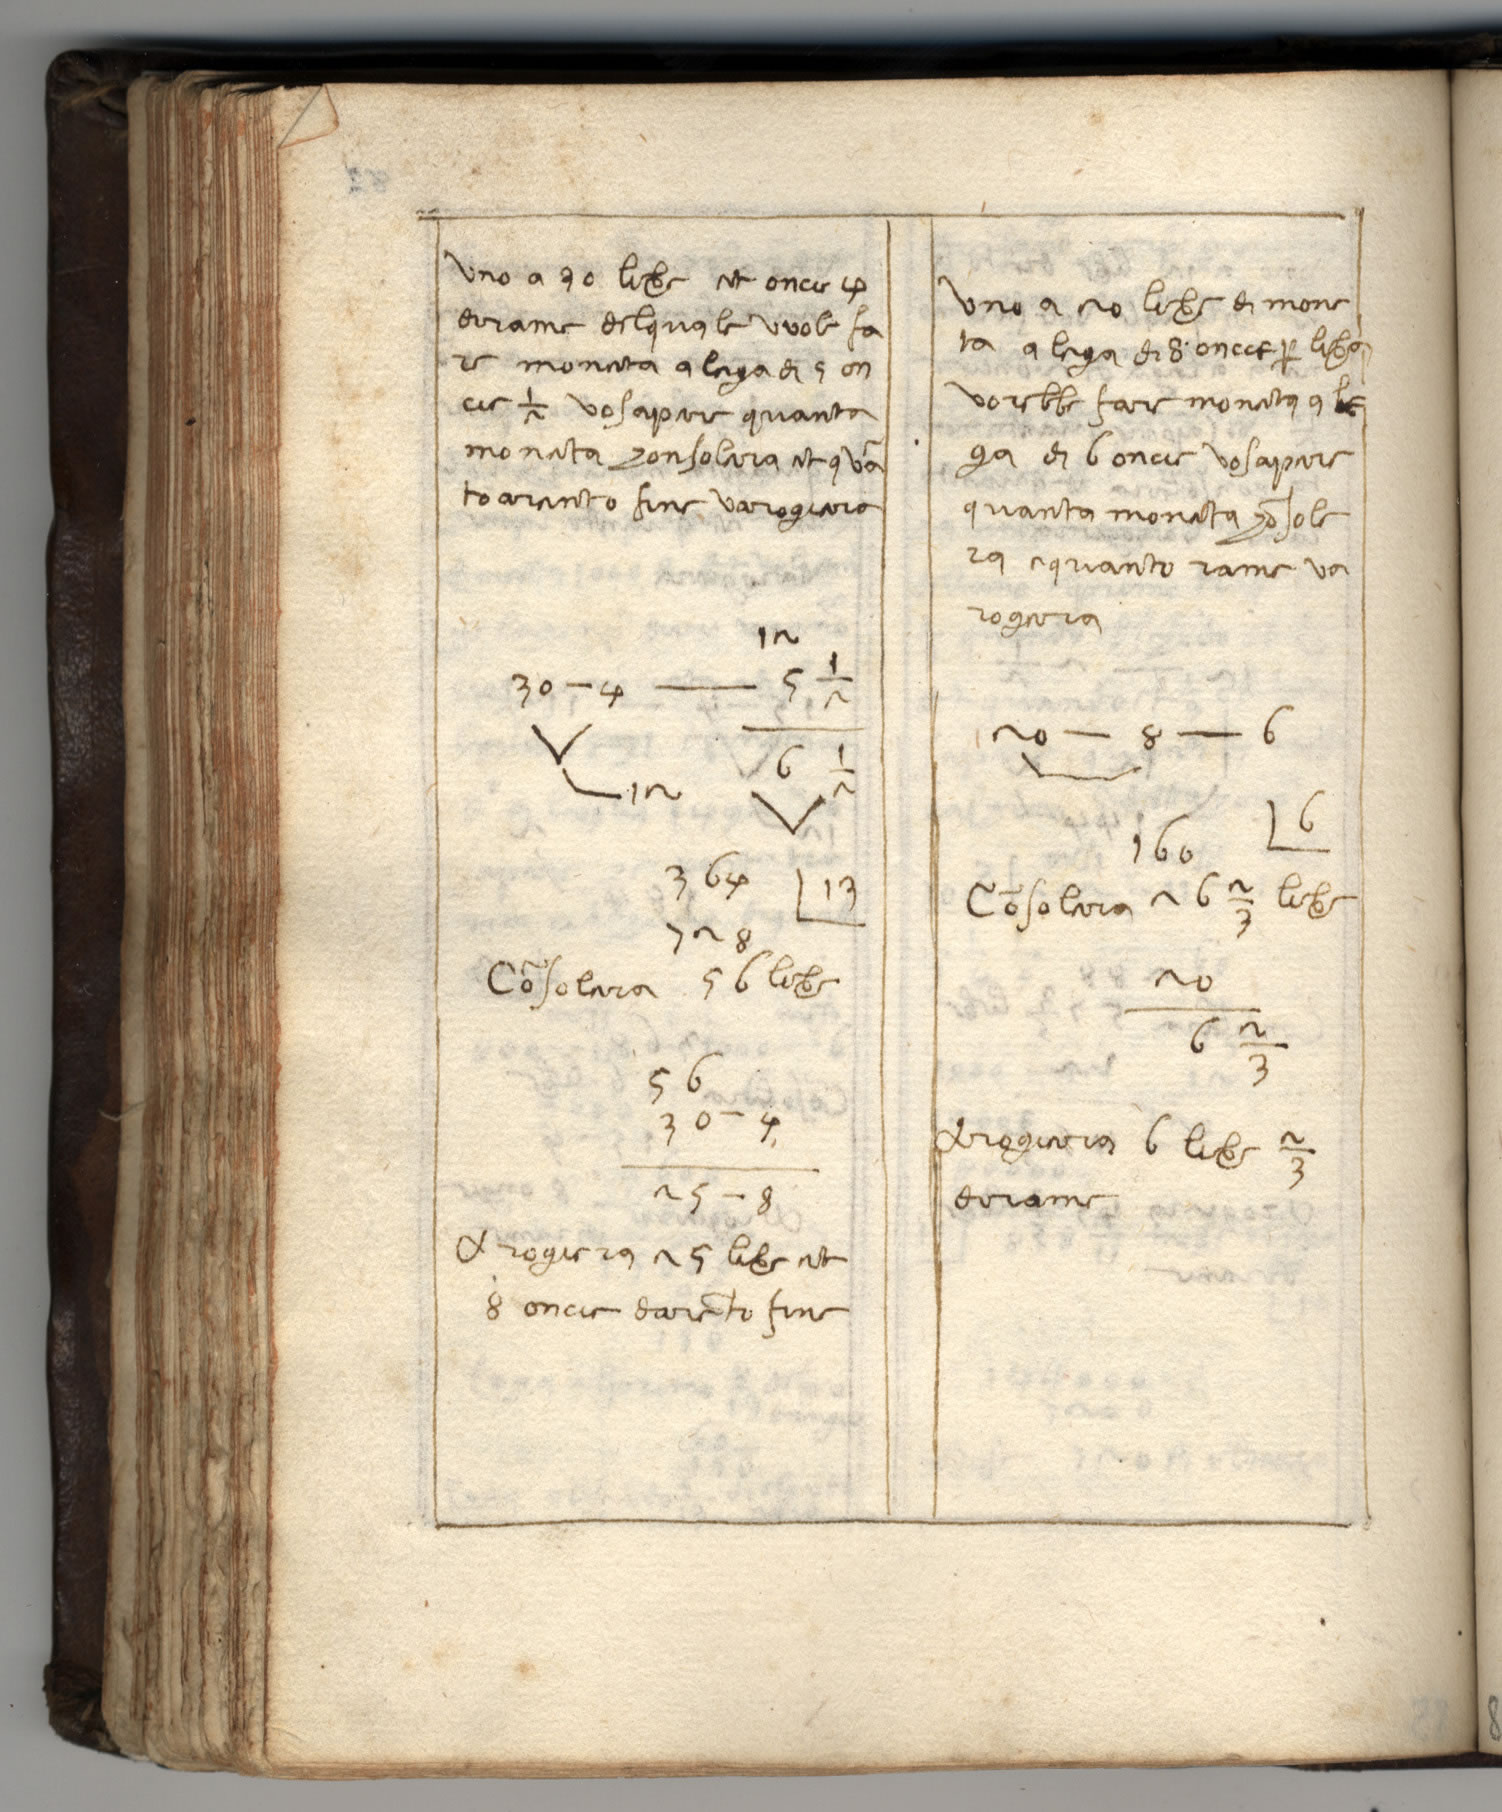 Uno a 30 libre et oncie 4
di rame delqualе vuole fa
re moneta a lega di 5 on
cie 1/2 vo sapere quanta
moneta consolera et quā
to arento fine va rogiera
12
30 — 4 — 5 1/2
6 1/2
12
364 13
728
Cōsolera 56 libre
56
30 — 4
25 — 8
Et rogiera 25 libre et
8 oncie darēto fine
Uno a 20 libre di mone
ta a lega di 8 oncie p libra
vorebbe fare moneta a le
ga di 6 oncie vo sapere
quanta moneta cōsole
ra e quanto rame va
rogiera
20 — 8 — 6
160 6
Cōsolera 26 2/3 libre
20
6 2/3
Et rogiera 6 libre 2/3
di rame